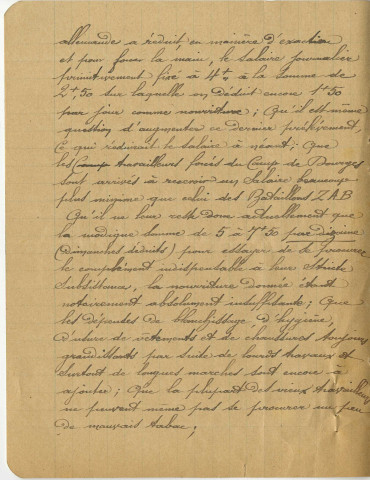 allemande a réduit, en manière d'exaction
et pour forcer la main, le salaire journalier
primitivement fixé à 4 frs à la somme de
2f,50 sur laquelle on déduit encore 1f50
par jour comme nourriture ; Qu'il est même
question d'augmenter ce dernier prélèvement,
ce qui réduirait le salaire à néant ; Que
les Camp travailleurs forcés du Camp de Bourges
sont arrivés à recevoir un salaire beaucoup
plus minime que celui des Bataillons Z.A.B
Qu'il ne leur reste donc actuellement que
la modique somme de 5 à 7f50 par dizaine
(dimanches déduits) pour essayer de se procurer
le complément indispensable à leur stricte
subsistance, la nourriture donnée étant
notoirement absolument insuffisante ; Que
les dépenses de blanchissage d'hygiène,
d'usure de vêtements et de chaussures toujours
grandissants par suite de lourds travaux et
surtout de longues marches sont encore à
ajouter ; Que la plupart des vieux travailleurs
ne peuvent même pas se procurer un peu
de mauvais tabac ;